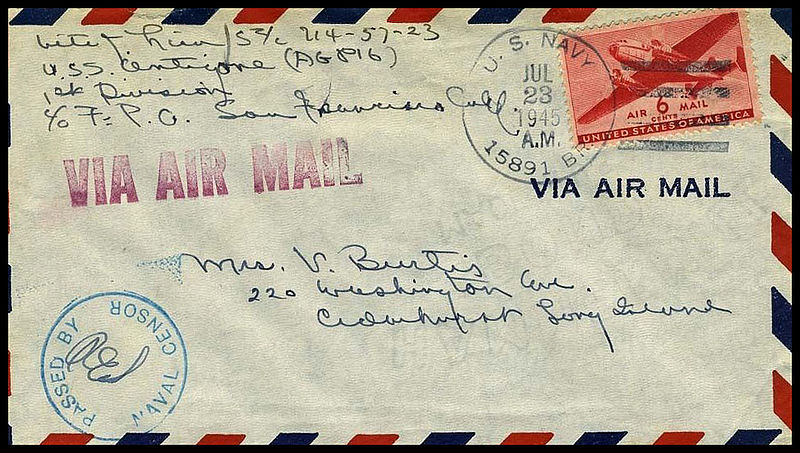 S2/c 714-57-23
U.S.S. (AG 816)
1st Division
c/o F.P.O. San Francisco Calif
U.S. NAVY
JUL
23
1945
A.M.
15891 BR.
AIR 6 MAIL
CENTS
UNITED STATES OF AMERICA
VIA AIR MAIL
VIA AIR MAIL
Mrs. V. Burtis
220 Washington Ave.
Cedarhurst Long Island
PASSED BY
NAVAL CENSOR